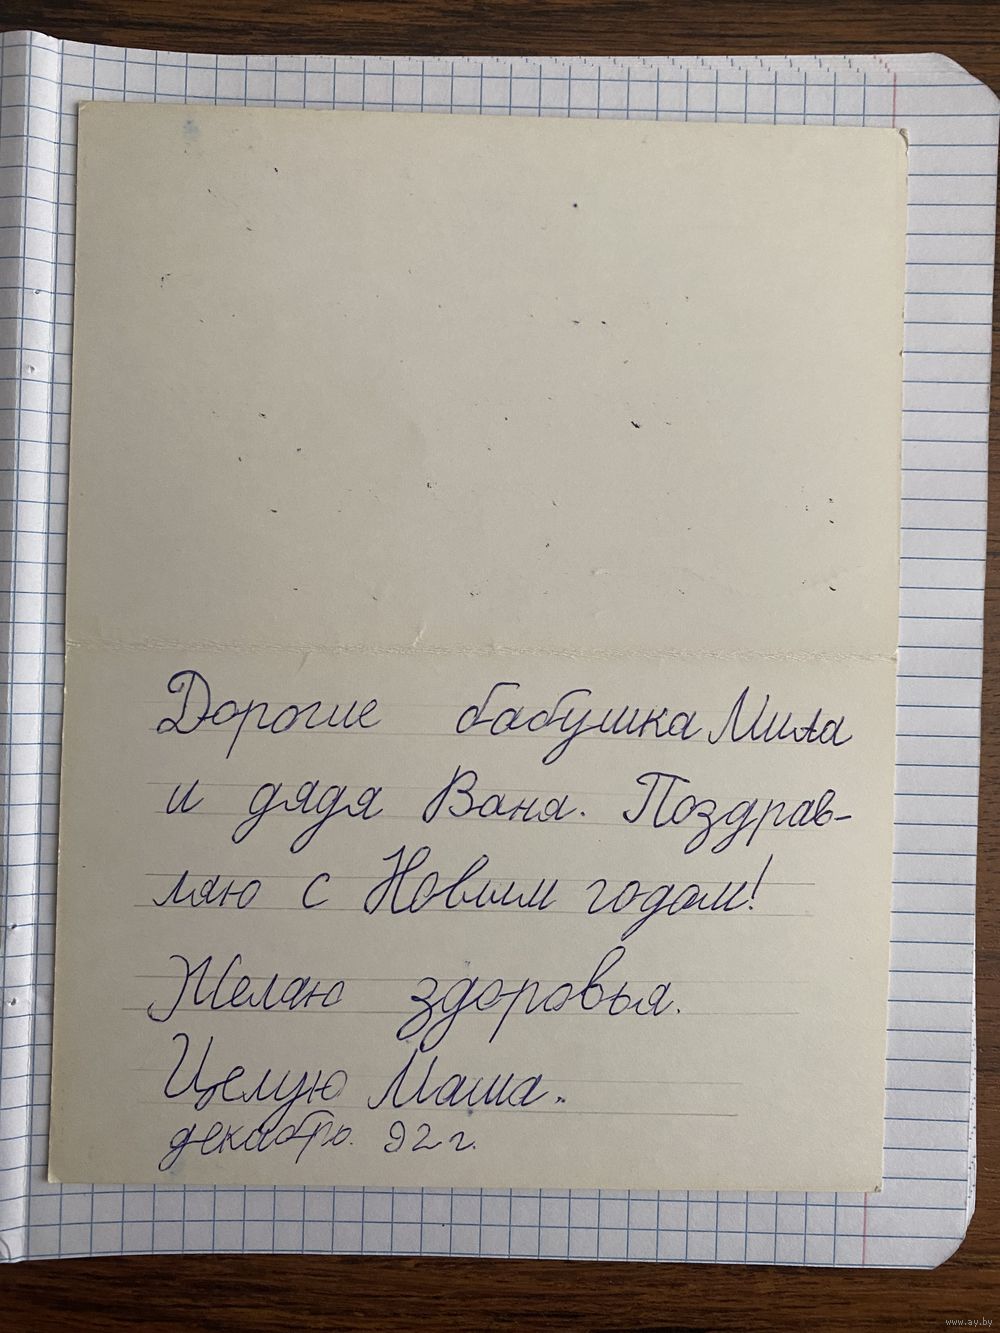 Дорогие бабушка Мила
и дядя Ваня. Поздрав-
ляю с Новым годом!
Желаю здоровья.
Целую Маша.
декабрь. 92 г.
www.ay.by